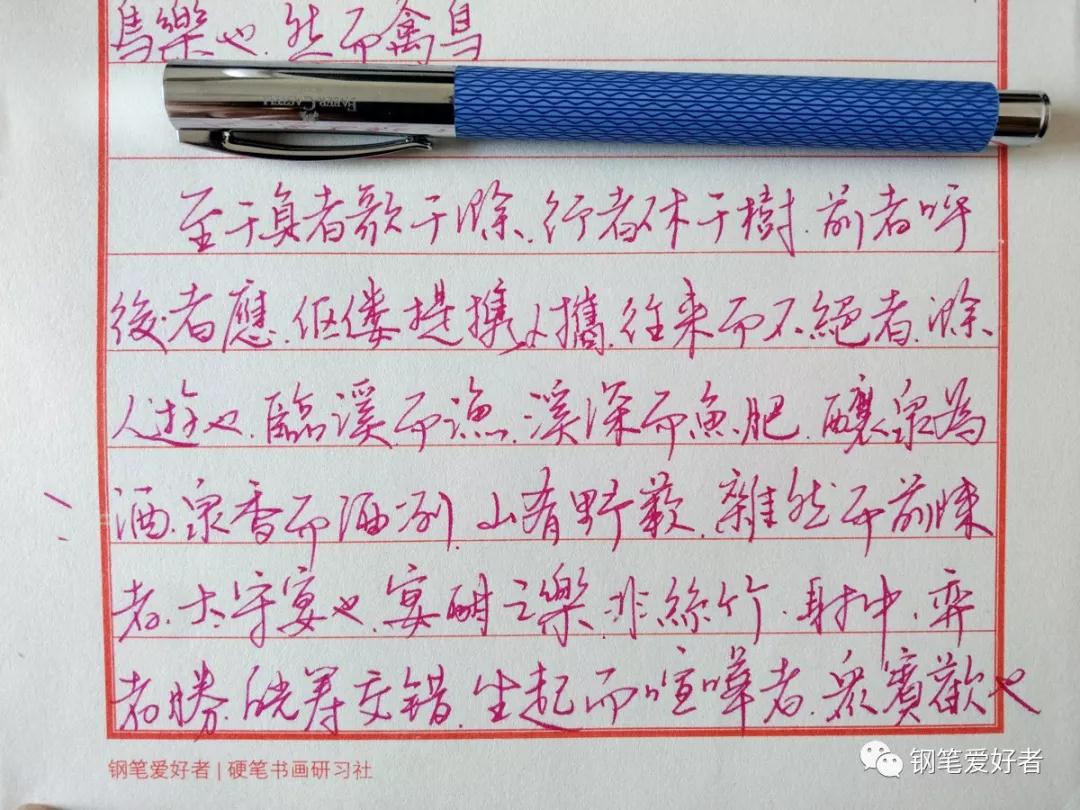 鳥樂也.然而禽鳥
FABER-CASTELL
至于負者歌于滁.行者休于樹.前者呼
後者應.伛偻提携.攜.往来而不絕者.滁
人遊也.臨溪而漁.溪深而魚肥.釀泉為
酒.泉香而酒冽.山肴野蔌.雜然而前陳
者.太守宴也.宴酣之樂.非絲竹.射中.弈
者勝.觥筹交错.坐起而喧嘩者.衆賓歡也
钢笔爱好者 | 硬笔书画研习社
钢笔爱好者